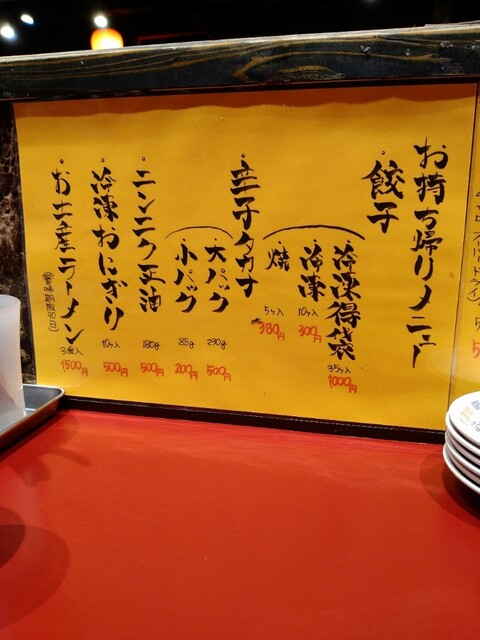 お持ち帰りメニュー
餃子
冷凍得袋 35ヶ入 1000円
冷凍 10ヶ入 300円
焼 5ヶ入 380円
辛子タカナ
大パック 230g 500円
小パック 85g 200円
ニンニク正油 180g 500円
冷凍おにぎり 10ヶ入 500円
お土産ラーメン 3食入 1500円
(賞味期限90日)